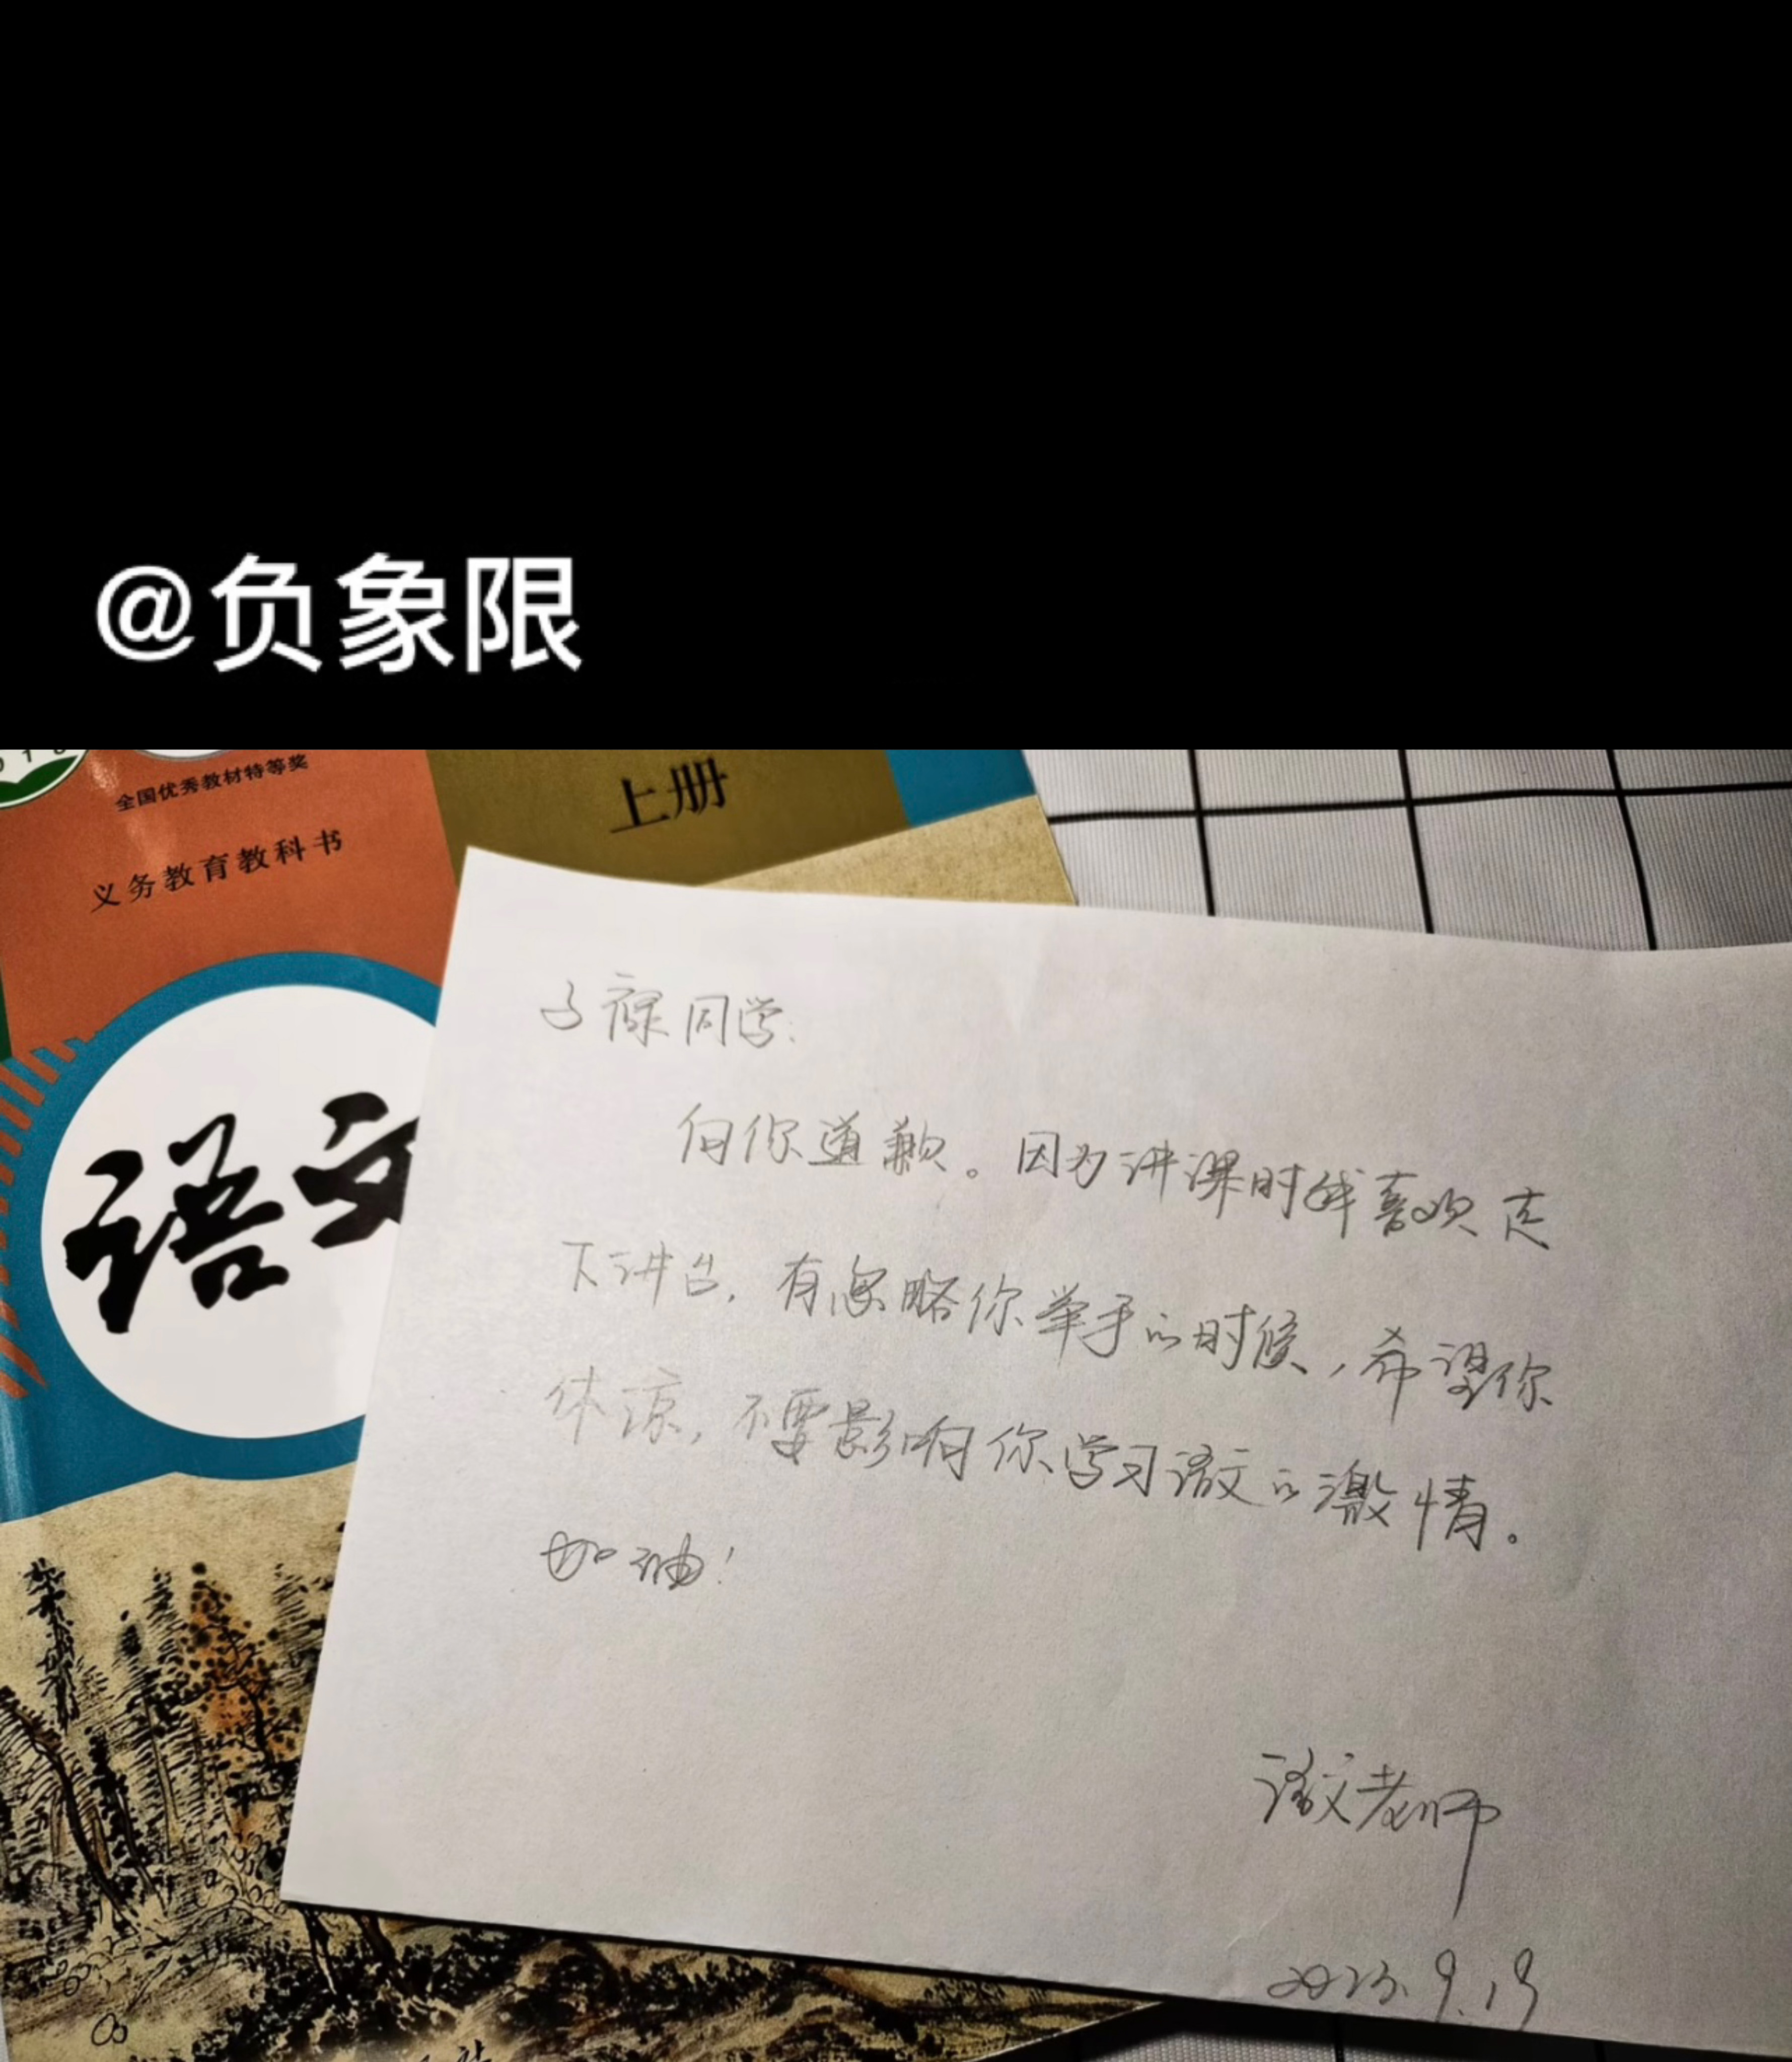 @负象限
全国优秀教材特等奖
上册
义务教育教科书
语文
子禄同学:
向你道歉。因为讲课时我喜欢走
下讲台,有忽略你举手的时候,希望你
体谅,不要影响你学习语文的激情。
加油!
语文老师
2023.9.19